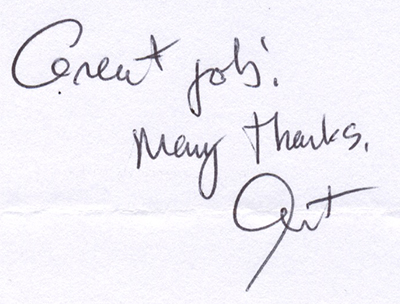 Great job!
Many thanks,
Art